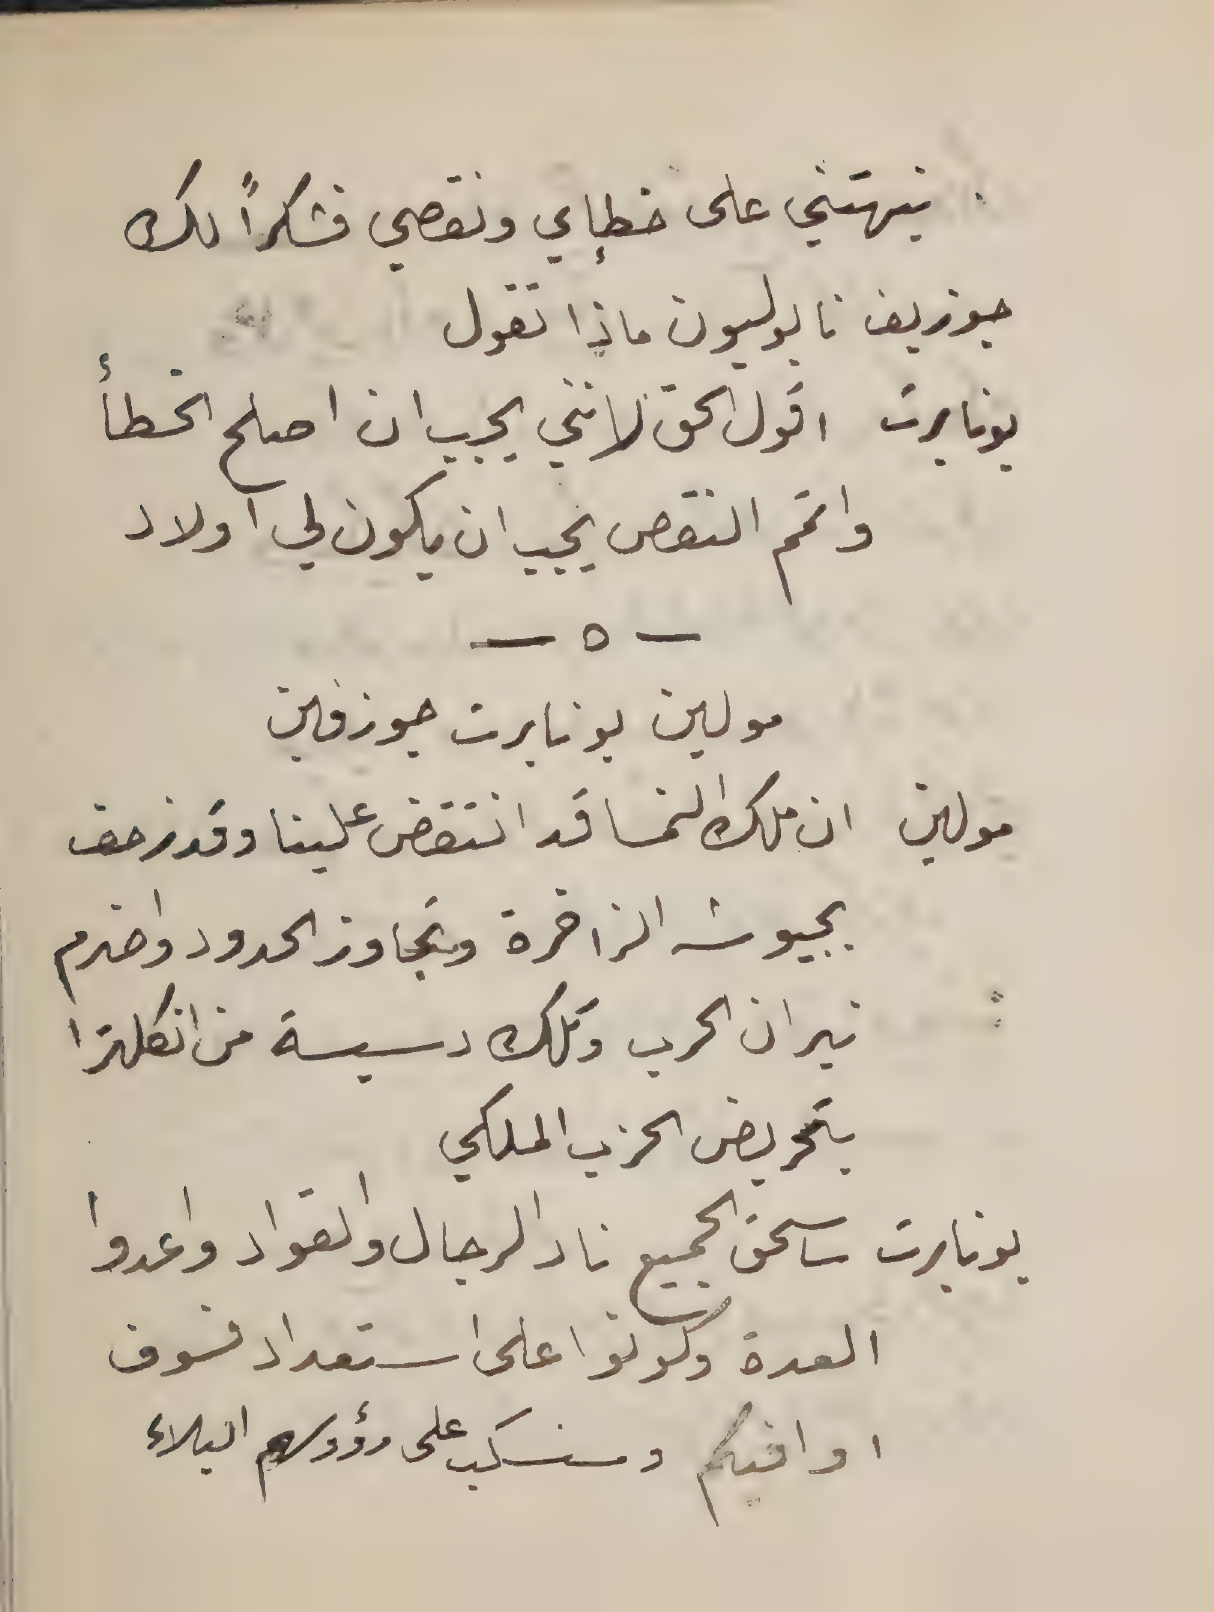 نبهتني على خطإي ونقصي فشكراً لك
جوزيف نابوليون ماذا تقول
بونابرت اقول الحق لانني يجب ان اصلح الخطأ
واتمم النقص يجب ان يكون لي اولاد
— ٥ —
مولين بونابرت جوزفين
مولين ان ملك النمسا قد انتقض علينا وقد زحف
بجيوشه الزاخرة وتجاوز الحدود واضرم
نيران الحرب وتلك دسيسة من انكلترا
بتحريض الحزب الملكي
بونابرت ساسحق الجميع ناد الرجال والقواد واعدوا
العدة وكونوا على استعداد فسوف
اوافيكم وسنسكب على رؤوسهم البلاء